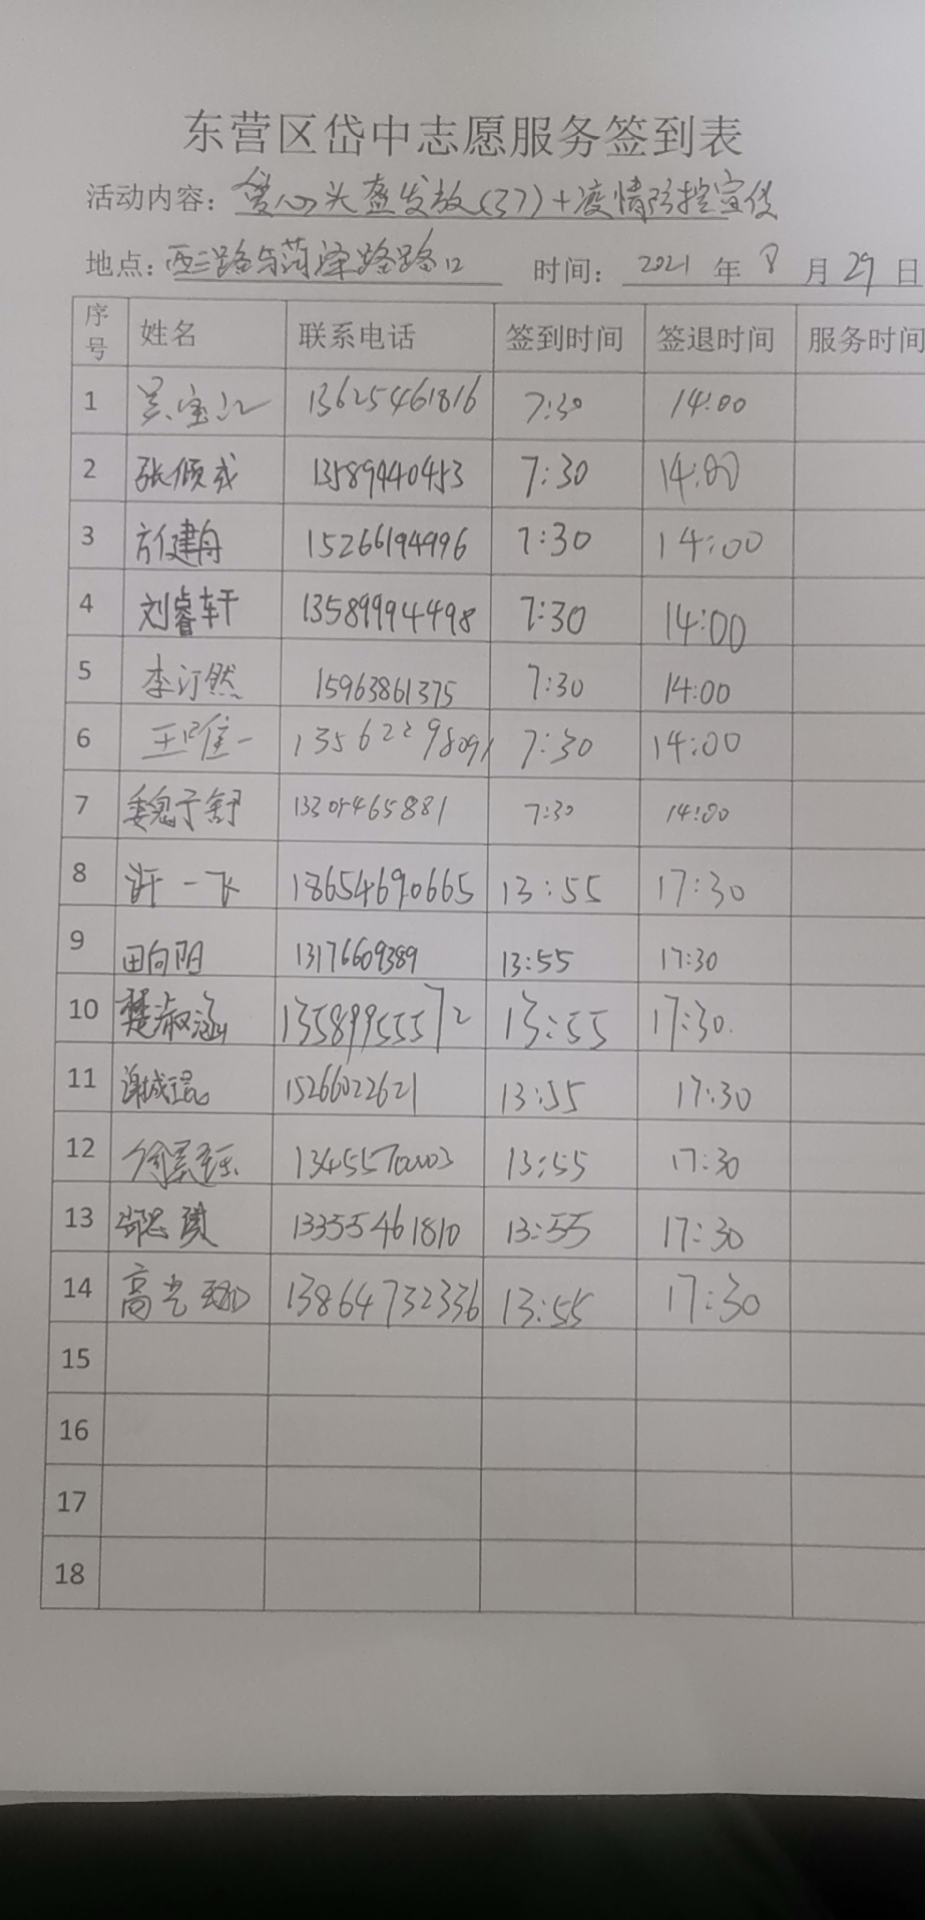 东营区岱中志愿服务签到表
活动内容：爱心头盔发放(37)+疫情防控宣传
地点：西三路与菏泽路路口 时间：2021年8月29日
序号 姓名 联系电话 签到时间 签退时间 服务时间
1 吴宝江 13625461816 7:30 14:00
2 张倾戎 13589440453 7:30 14:00
3 方健舟 15266194996 7:30 14:00
4 刘睿轩 13589994498 7:30 14:00
5 李汀然 15963861375 7:30 14:00
6 王唯一 13562298091 7:30 14:00
7 魏子舒 13305465881 7:30 14:00
8 许一飞 18654690665 13:55 17:30
9 田向阳 13176609389 13:55 17:30
10 楚淑涵 13589955572 13:55 17:30
11 谢城琨 15266022621 13:55 17:30
12 13:55 17:30
13 13355461810 13:55 17:30
14 高 13864732336 13:55 17:30
15
16
17
18